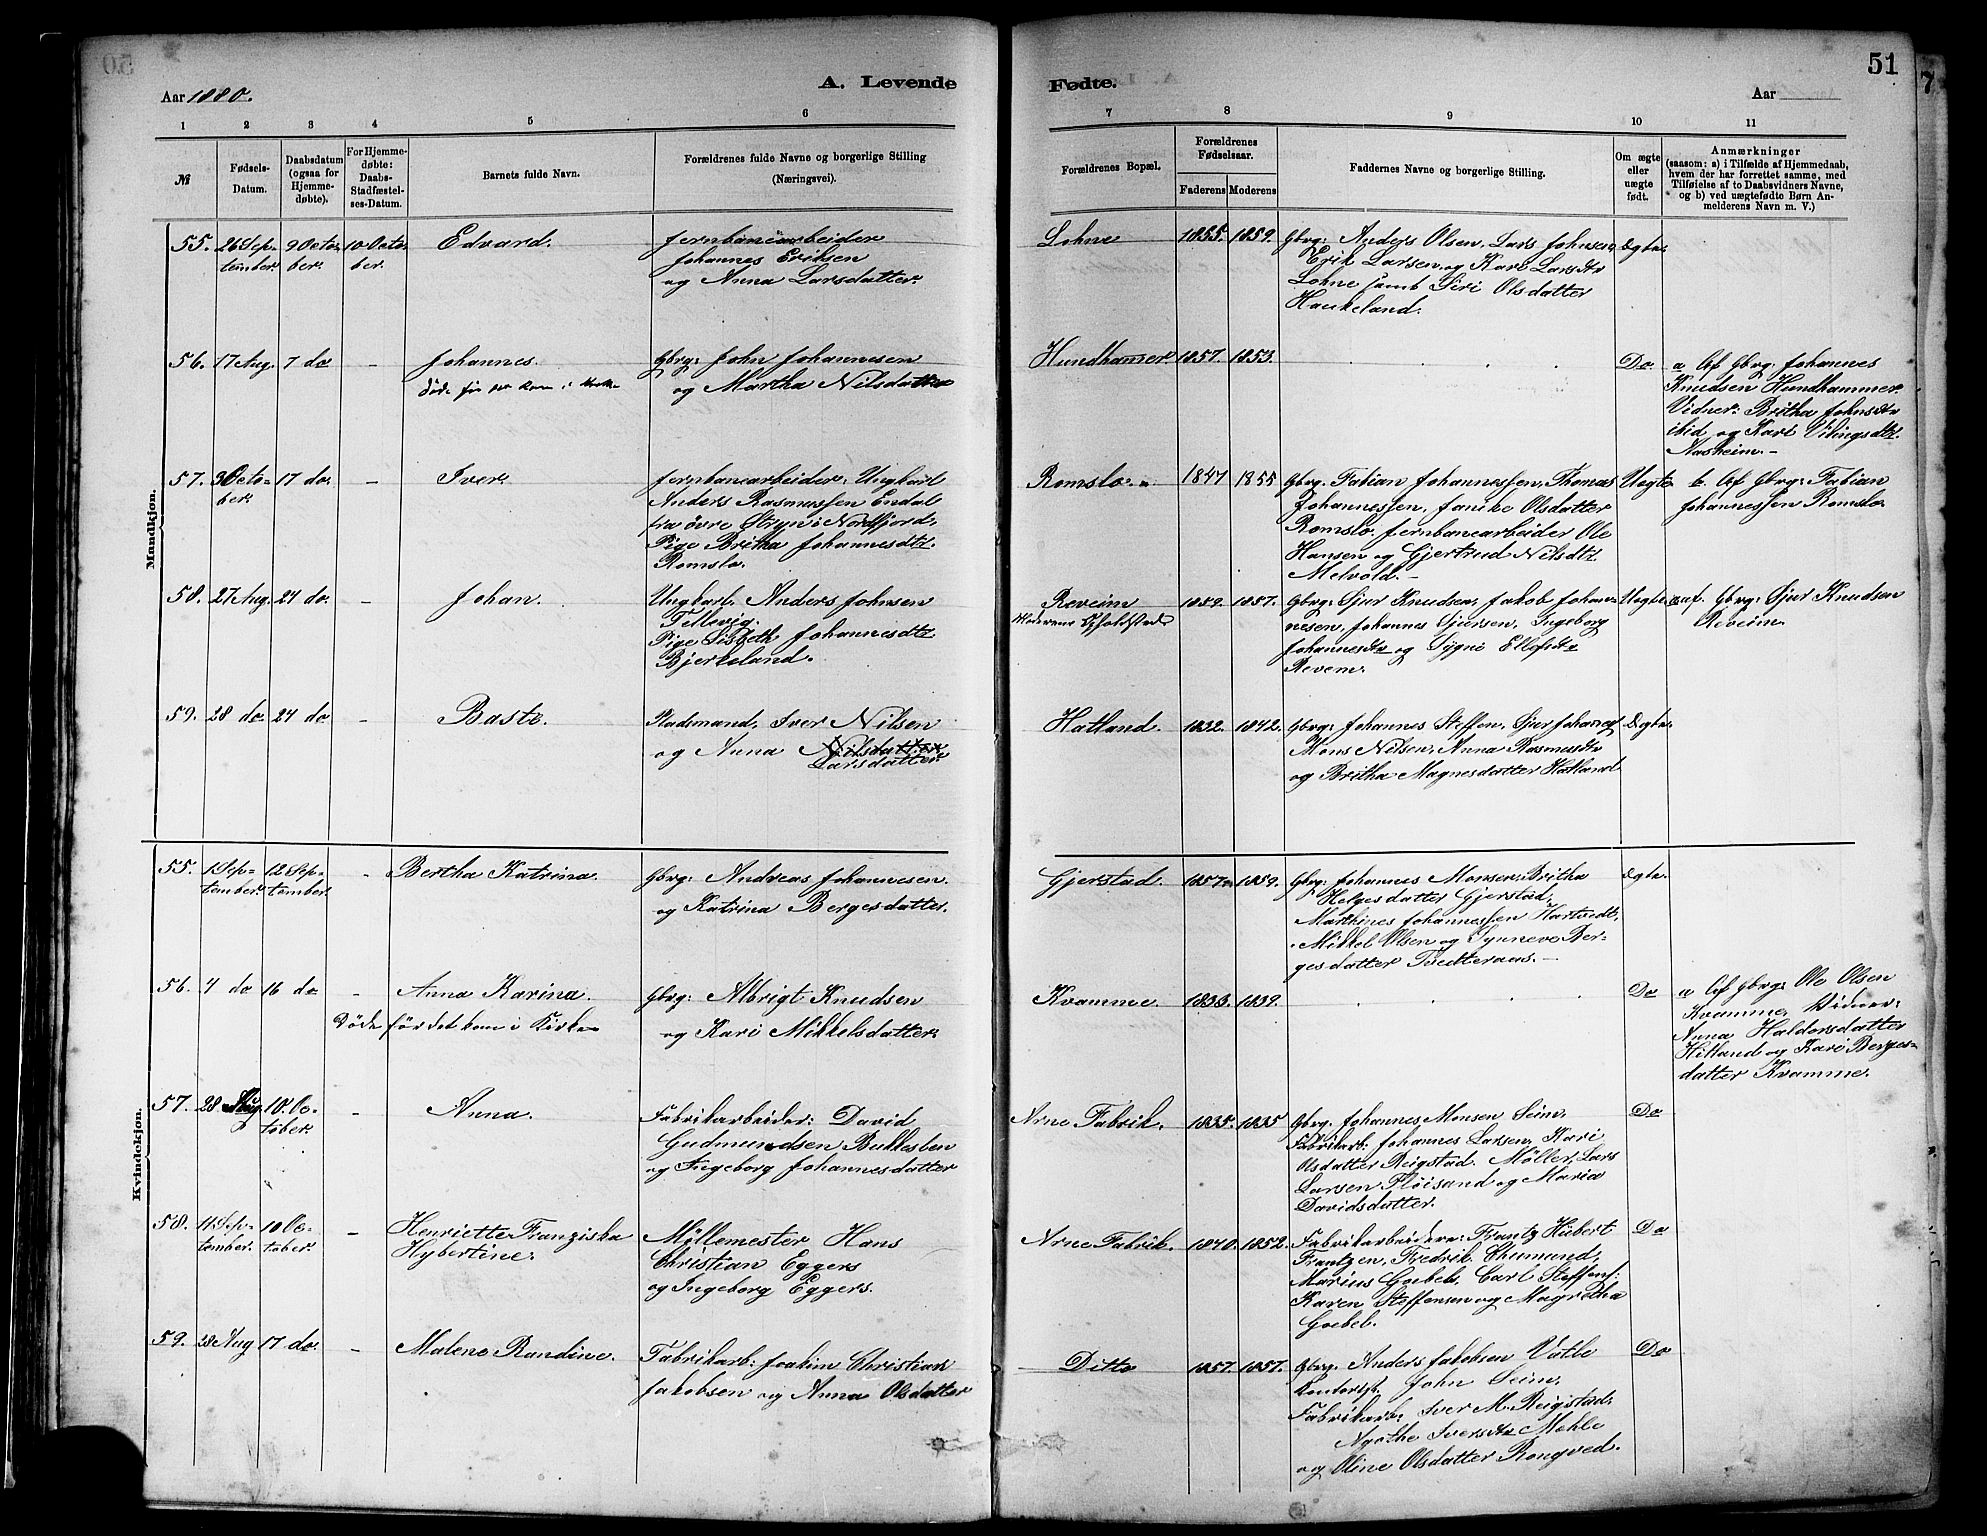 51
Aar 1880.
A. Levende
Fødte.
Aar
1 2 3 4 5 6 7 8 9 10 11
№
Fødsels-
Datum.
Daabsdatum
(ogsaa for
Hjemme-
døbte).
For Hjemme-
døbte:
Daabs-
Stadfæstel-
ses-Datum.
Barnets fulde Navn.
Forældrenes fulde Navne og borgerlige Stilling
(Næringsvei).
Forældrenes Bopæl.
Forældrenes
Fødselsaar.
Faderens Moderens
Faddernes Navne og borgerlige Stilling.
Om ægte
eller
uægte
født.
Anmærkninger
(saasom: a) i Tilfælde af Hjemmedaab,
hvem der har forrettet samme, med
Tilføielse af to Daabsvidners Navne,
og b) ved uægtefødte Børn An-
melderens Navn m. V.)
Mandkjøn.
55.
26 Sep-
tember.
9 Octo-
ber.
10 Octo-
ber.
Edvard.
Jernbanearbeider
Johannes Eriksen
og Anna Larsdatter.
Lohne
1855. 1859.
Gbrg: Anders Olsen, Lars Johnsen,
Erik Larsen og Kari Larsdtr
Lohne samt Siri Olsdatter
Haukeland.
Ægte.
56.
17 Aug.
7 do
-
Johannes.
Døde før det kom i Kirke
Gbrg: John Johannesen
og Martha Nilsdatter
Hundhamer
1857. 1853.
Do
a Af Gbrg: Johannes
Knudsen Hundhammer.
Vidner: Britha Johnsdtr
ibid og Kari Vikingsdtr.
Aasheim.-
57.
3 Octo-
ber
17 do.
-
Iver
Jernbanearbeider: Ungkarl
Anders Rasmussen Endal
fra øvre Stryn i Nordfjord,
Pige Britha Johannesdtr.
Romslo.
Romslo.
1847 1855
Gbrg. Fabian Johannessen, Thomas
Johannessen, Janike Olsdatter
Romslo, Jernbanearbeider Ole
Hansen og Gjertrud Nilsdtr
Melvold.-
Uægte
b. Af Gbrg: Fabian
Johannessen Romslo.
58.
27 Aug.
24 do.
-
Johan.
Ungkarl. Anders Johnsen
Tellevig.
Pige Lisbeth Johannesdtr
Bjerkeland.
Reveim
Moderens Opholdssted
1859. 1857.
Gbrg: Sjur Knudsen, Jakob Johan-
nesen, Johannes Sjursen, Ingeborg
Johannesdtr og Sygni Ellefsdtr
Revem.
Uægte
af. Gbrg: Sjur Knudsen
Reveim.
59.
28 do.
24 do
-
Baste.
Pladsmand, Iver Nilsen
og Anna Nilsdatter
Larsdatter
Hatland.
1832. 1842.
Gbrg: Johannes Steffen, Sjur Johannes
Mons Nilsen, Anna Rasmusdtr
og Britha Magnesdatter Hatland
Ægte.
Kvindekjøn.
55.
1 Sep-
tember.
12 Sep-
tember.
-
Bertha Katrina.
Gbrg: Andreas Johannesen.
og Katrina Bergesdatter.
Gjerstad.
1857. 1859.
Gbrg: Johannes Monsen, Britha
Helgesdatter Gjerstad,
Marthines Johannessen Hartvedt,
Mikkel Olsen og Synneve Ber-
gesdatter Tvedteraas.-
Ægte.
56.
4 do
16 do
-
Anna Karina.
Døde før det kom i Kirke
Gbrg: Albrigt Knudsen
og Kari Mikkelsdatter.
Kvamme.
1833. 1839.
Do
a Af Gbrg: Ole Olsen
Kvamme, Vidner:
Anna Haldorsdatter
Hitland og Kari Berges-
datter Kvamme.
57.
28 Aug.
10. Oc-
tober.
-
Anna.
Fabrikarbeider: David
Gudmundsen Bukkesten
og Ingeborg Johannesdatter
Arne Fabrik.
1835. 1835
Gbrg. Johannes Monsen Seim,
Fabrikarb: Johannes Larsen, Kari
Olsdatter Reigstad. Møller, Lars
Larsen Fløisand og Maria
Davidsdatter.
Do
58.
11 Sep-
tember.
10 Oc-
tober.
-
Henriette Franziska
Hybertine.
Møllemester Hans
Christian Eggers
og Ingeborg Eggers.
Arne Fabrik.
1840. 1852.
Fabrikarbeidere: Frantz Hübert
Frantzen, Fredrik Shumund,
Marius Goebel, Carl Steffens:
Karen Steffensen og Magretha
Goebel.
Do
59.
28 Aug
17 do.
-
Malene Randine.
Fabrikarb: Joakim Christian
Jakobsen og Anna Olsdatter
Ditto
1857. 1857.
Gbrg: Anders Jakobsen Vatle
Kontorist. John Seim,
Fabrikarb: Iver M. Reigstad,
Agathe Iversdtr Mehle
og Oline Olsdatter Rongved.
Do